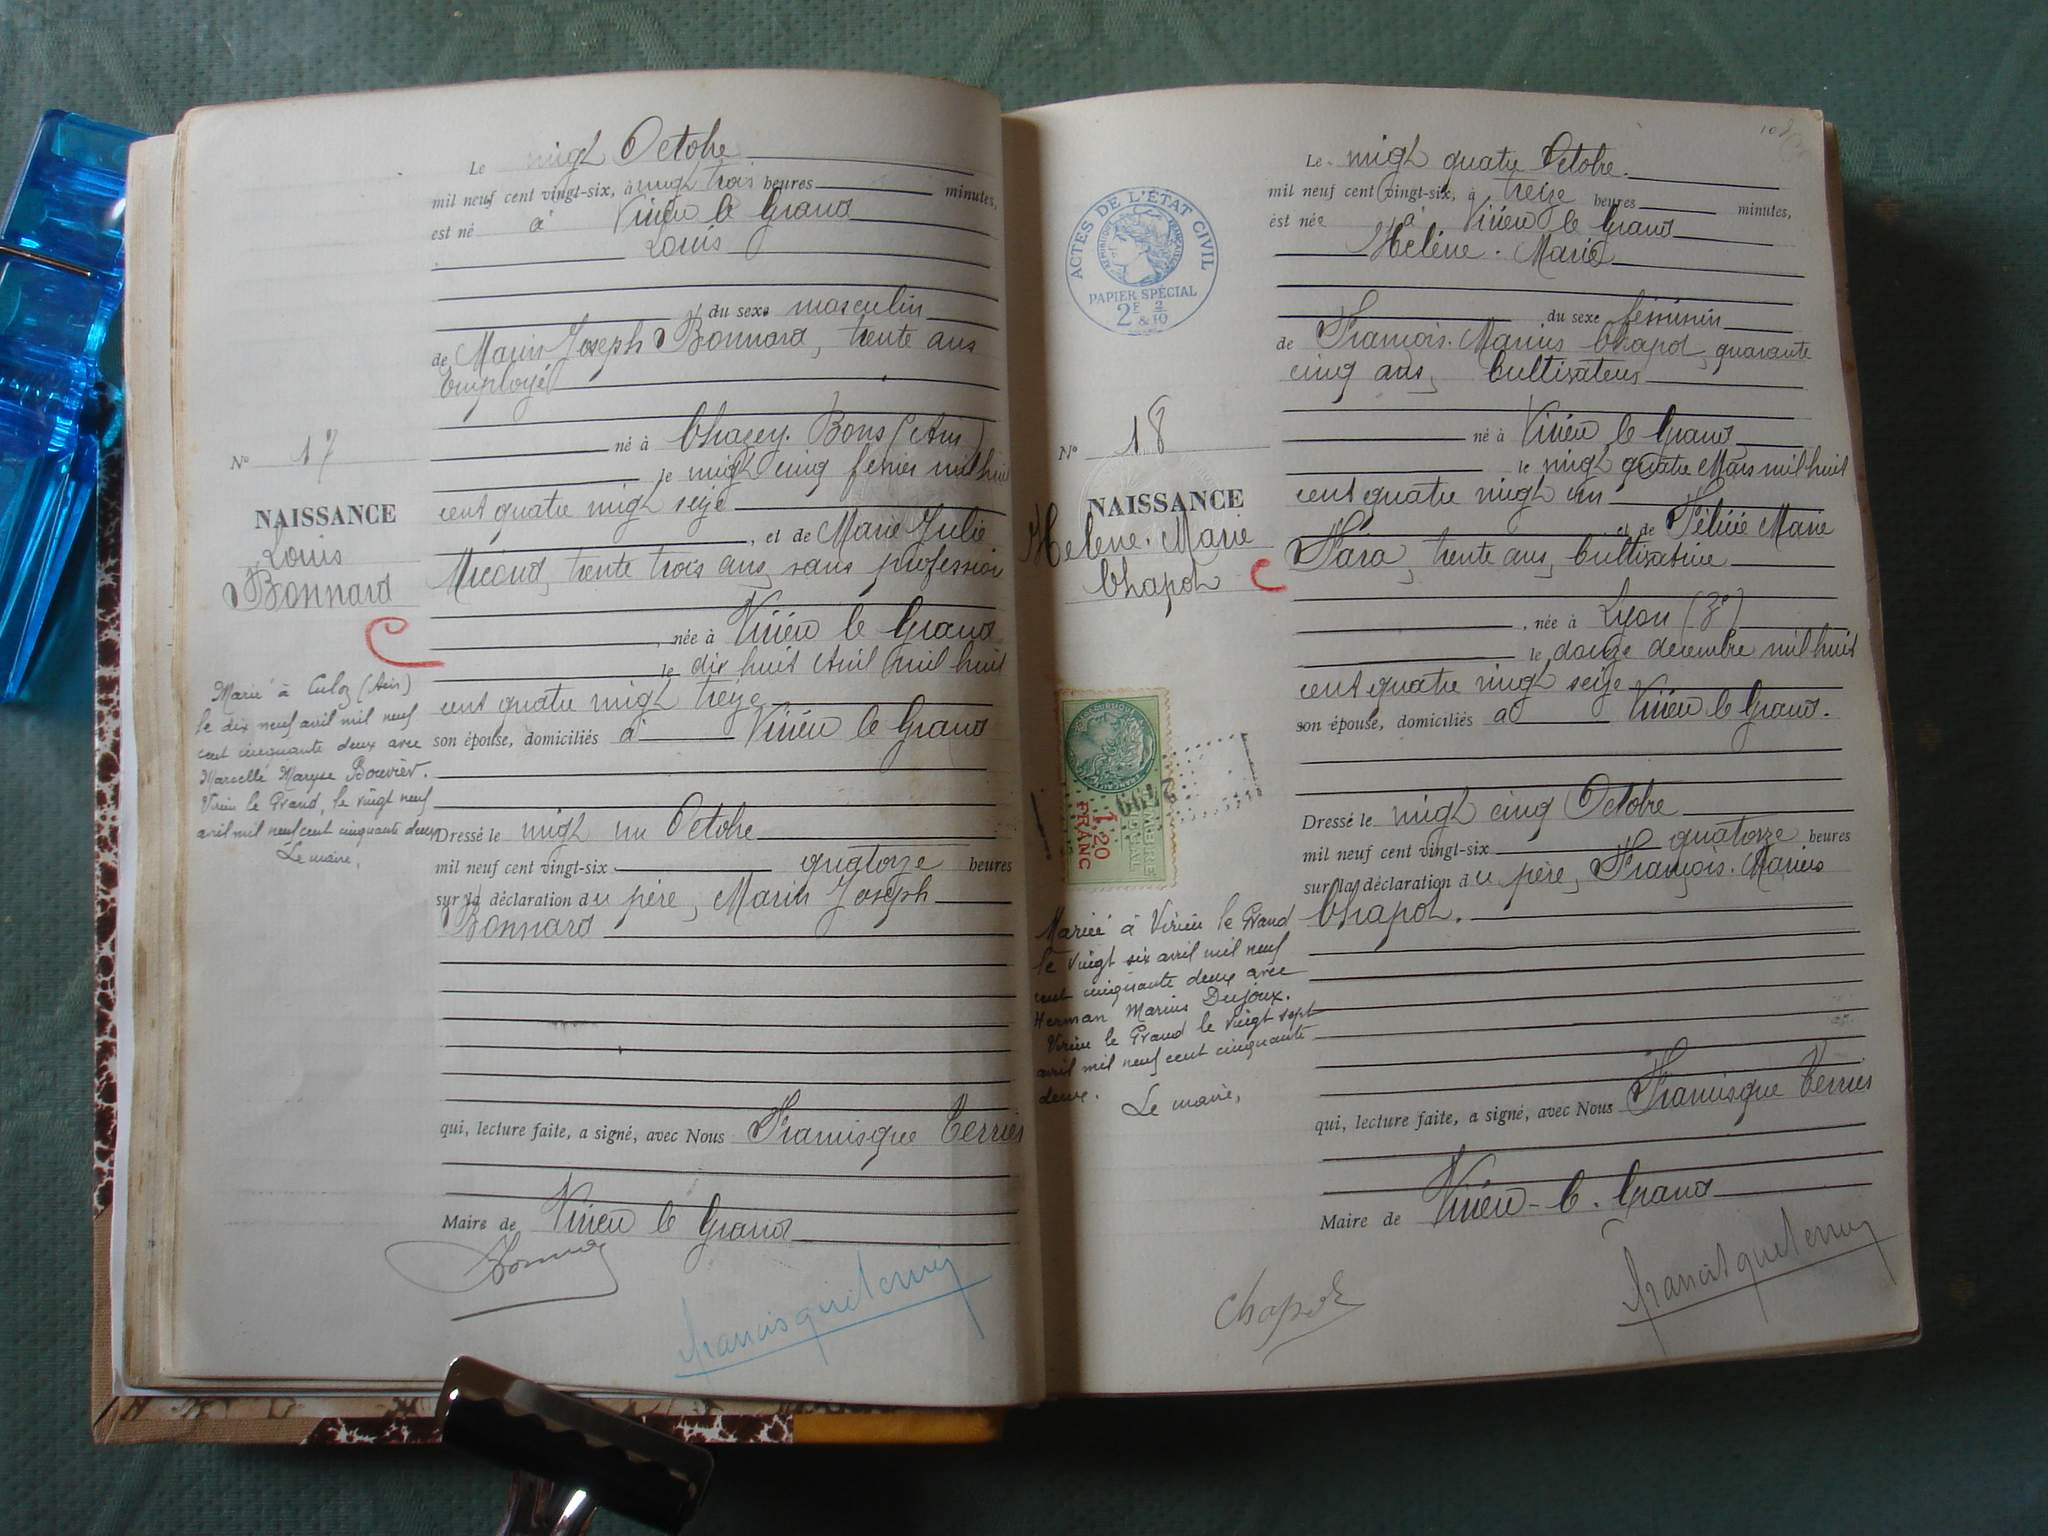 Le vingt Octobre
mil neuf cent vingt-six, à vingt trois heures minutes,
est né à Virieu le Grand
Louis
du sexe masculin
de Marin Joseph Bonnard, trente ans
Employé
né à Chazey-Bons (Ain)
le vingt cinq fevrier mil huit
cent quatre vingt seize
, et de Marie Julie
trente trois ans, sans profession
, née à Virieu le Grand
le dix huit Avril mil huit
cent quatre vingt treize
son épouse, domiciliés à Virieu le Grand
Dressé le vingt un Octobre
mil neuf cent vingt-six quatorze heures
sur la déclaration du père, Marin Joseph
Bonnard
qui, lecture faite, a signé, avec Nous Francisque Terrier
Maire de Virieu le Grand
N° 17
NAISSANCE
Louis
Bonnard
C
Marié à Culoz (Ain)
le dix neuf avril mil neuf
cent cinquante deux avec
Marcelle Maryse Bouvier.
Virieu le Grand, le vingt neuf
avril mil neuf cent cinquante deux
Le maire,
Le vingt quatre Octobre
mil neuf cent vingt-six, à treize heures minutes,
est née à Virieu le Grand
Hélène. Marie
du sexe féminin
de François. Marius Chapot, quarante
cinq ans, Cultivateur
né à Virieu le Grand
le vingt quatre Mars mil huit
cent quatre vingt un
et de Félicie Marie
trente ans, Cultivatrice
, née à Lyon (3e)
le douze decembre mil huit
cent quatre vingt seize
son épouse, domiciliés à Virieu le Grand.
Dressé le vingt cinq Octobre
mil neuf cent vingt-six quatorze heures
sur la déclaration du père, François. Marius
Chapot.
qui, lecture faite, a signé, avec Nous Francisque Terrier
Maire de Virieu-le-Grand
Chapot
Francisque Terrier
ACTES DE L'ÉTAT CIVIL
RÉPUBLIQUE FRANÇAISE
PAPIER SPÉCIAL
2F & 2/10
N° 18
NAISSANCE
Hélène. Marie
Chapot
C
1,20
FRANC
Mariée à Virieu le Grand
le vingt six avril mil neuf
cent cinquante deux avec
Herman Marius Dujoux.
Virieu le Grand le vingt sept
avril mil neuf cent cinquante
deux.
Le maire,